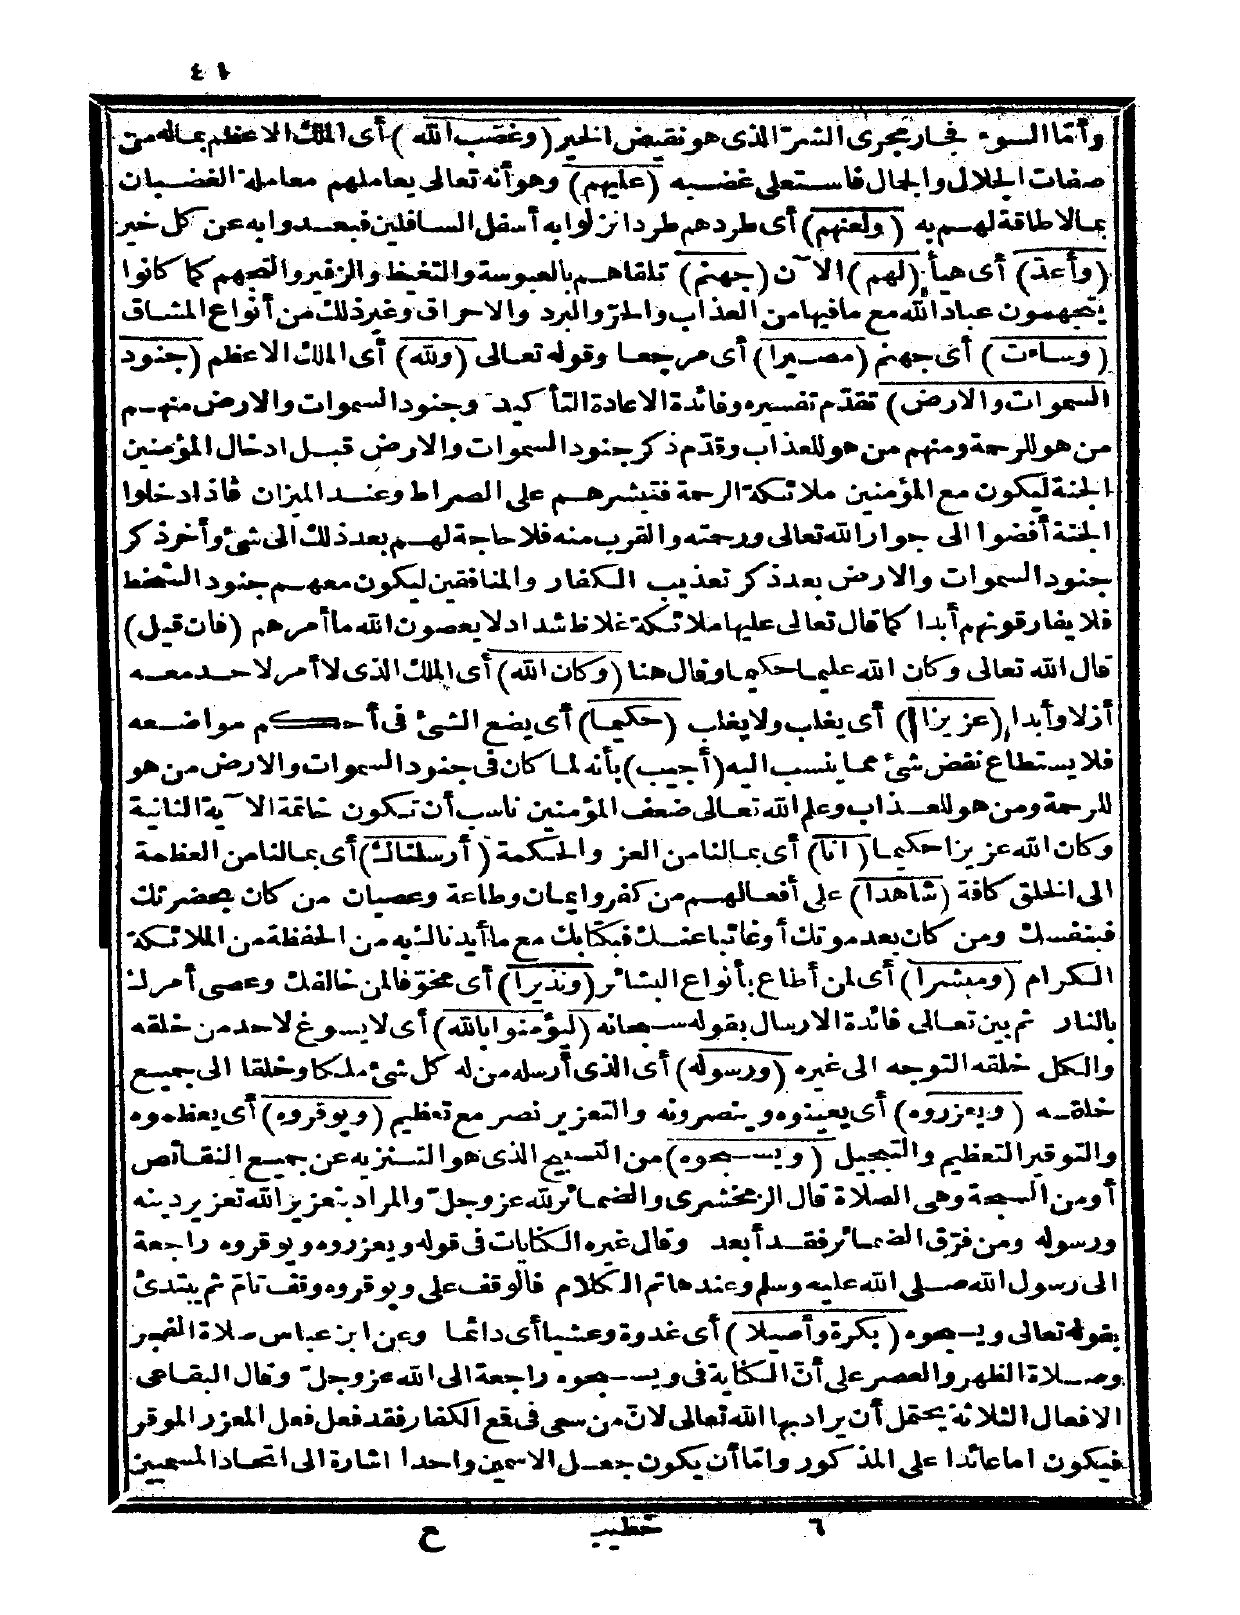 ٤١
وأمّا السوء فجار مجرى الشرّ الذى هو نقيض الخير (وغضب الله) أى الملك الاعظم بماله من
صفات الجلال والجمال فاستعلى غضبه (عليهم) وهو أنه تعالى يعاملهم معاملة الغضبان
بما لا طاقة لهم به (ولعنهم) أى طردهم طردا نزلوا به أسفل السافلين فبعدوا به عن كل خير
(وأعدّ) أى هيأ (لهم) الآن (جهنم) تلقاهم بالعبوسة والتغيظ والزفير والتجهم كما كانوا
يتجهمون عباد الله مع ما فيها من العذاب والحرّ والبرد والاحراق وغير ذلك من أنواع المشاق
(وساءت) أى جهنم (مصيرا) أى مرجعا وقوله تعالى (ولله) أى الملك الاعظم (جنود
السموات والارض) تقدّم تفسيره وفائدة الاعادة التأكيد وجنود السموات والارض منهم
من هو للرحمة ومنهم من هو للعذاب وقدّم ذكر جنود السموات والارض قبل ادخال المؤمنين
الجنة ليكون مع المؤمنين ملائكة الرحمة فتبشرهم على الصراط وعند الميزان فاذا دخلوا
الجنة أفضوا الى جوار الله تعالى ورحمته والقرب منه فلا حاجة لهم بعد ذلك الى شئ وأخر ذكر
جنود السموات والارض بعد ذكر تعذيب الكفار والمنافقين ليكون معهم جنود السخط
فلا يفارقونهم أبدا كما قال تعالى عليها ملائكة غلاظ شداد لا يعصون الله ما أمرهم (فان قيل)
قال الله تعالى وكان الله عليما حكيما وقال هنا (وكان الله) أى الملك الذى لا أمر لاحد معه
أزلا وأبدا (عزيزا) أى يغلب ولا يغلب (حكيما) أى يضع الشئ فى أحكم مواضعه
فلا يستطاع نقض شئ مما ينسب اليه (أجيب) بأنه لما كان فى جنود السموات والارض من هو
للرحمة ومن هو للعذاب وعلم الله تعالى ضعف المؤمنين ناسب أن تكون خاتمة الآية الثانية
وكان الله عزيزا حكيما (انا) أى بمالنا من العز والحكمة (أرسلناك) أى بمالنا من العظمة
الى الخلق كافة (شاهدا) على أفعالهم من كفر وايمان وطاعة وعصيان من كان بحضرتك
فبنفسك ومن كان بعد موتك أو غائبا عنك فبكتابك مع ما أيدناك به من الحفظة من الملائكة
الكرام (ومبشرا) أى لمن أطاع بأنواع البشائر (ونذيرا) أى مخوّفا لمن خالفك وعصى أمرك
بالنار ثم بين تعالى فائدة الارسال بقوله سبحانه (ليؤمنوا بالله) أى لا يسوغ لاحد من خلقه
والكل خلقه التوجه الى غيره (ورسوله) أى الذى أرسله من له كل شئ ملكا وخلقا الى جميع
خلقه (ويعزروه) أى يعينوه وينصرونه والتعزير نصر مع تعظيم (ويوقروه) أى يعظموه
والتوقير التعظيم والتبجيل (ويسبحوه) من التسبيح الذى هو التنزيه عن جميع النقائص
أو من السبحة وهى الصلاة قال الزمخشرى والضمائر لله عز وجلّ والمراد بتعزيز الله تعزير دينه
ورسوله ومن فرّق الضمائر فقد أبعد وقال غيره الكنايات فى قوله ويعزروه ويوقروه راجعة
الى رسول الله صلى الله عليه وسلم وعندها تم الكلام فالوقف على ويوقروه وقف تامّ ثم يبتدئ
بقوله تعالى ويسبحوه (بكرة وأصيلا) أى غدوة وعشيا أى دائما وعن ابن عباس صلاة الفجر
وصلاة الظهر والعصر على أنّ الكناية فى ويسبحوه راجعة الى الله عز وجلّ وقال البقاعى
الافعال الثلاثة يحتمل أن يراد بها الله تعالى لانّ من سعى فى قمع الكفار فقد فعل فعل المعزر الموقر
فيكون اما عائدا على المذكور وامّا أن يكون جعل الاسمين واحدا اشارة الى اتحاد المسميين
٦ خطيب ح